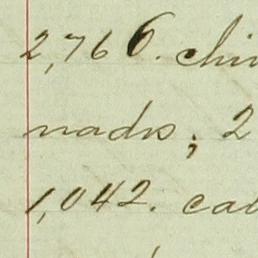 2,766. chi
nados; 2
1,042. cal